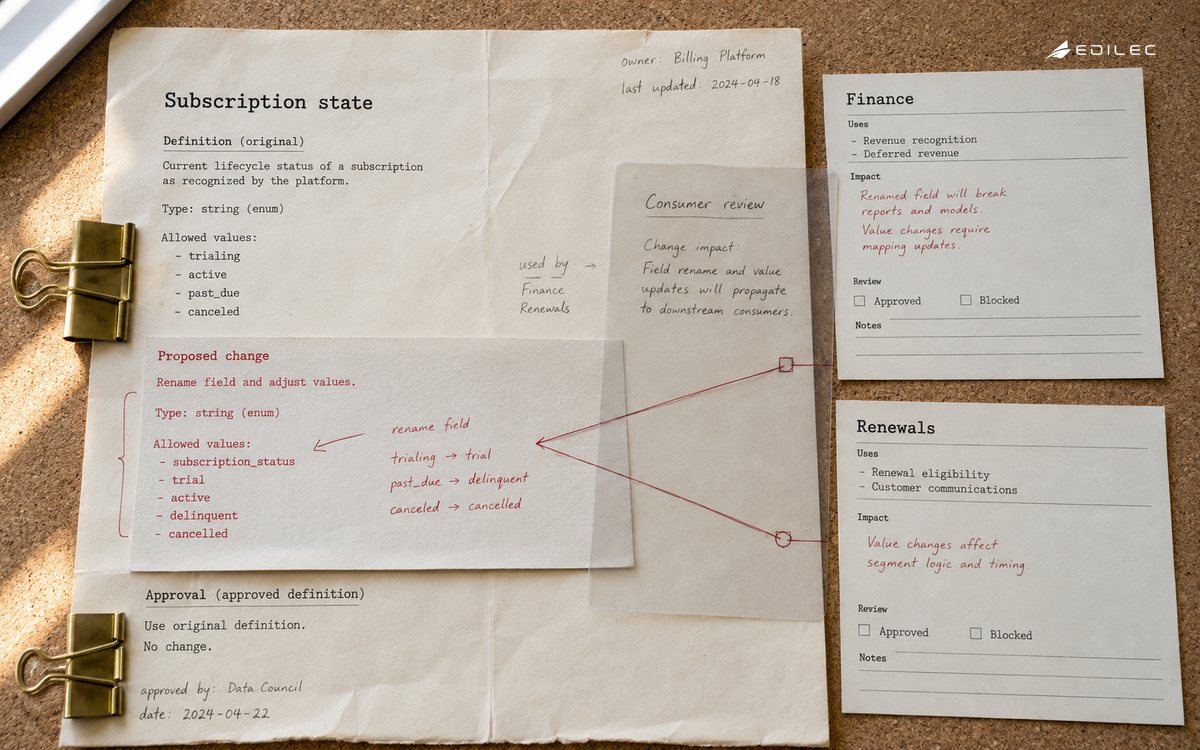 EDILEC
owner: Billing Platform
last updated: 2024-04-18
Subscription state
Definition (original)
Current lifecycle status of a subscription
as recognized by the platform.
Type: string (enum)
Allowed values:
- trialing
- active
- past_due
- canceled
used by →
Finance
Renewals
Consumer review
Change impact:
Field rename and value
updates will propagate
to downstream consumers.
Proposed change
Rename field and adjust values.
Type: string (enum)
Allowed values:
- subscription_status
- trial
- active
- delinquent
- cancelled
rename field
trialing → trial
past_due → delinquent
canceled → cancelled
Approval (approved definition)
Use original definition.
No change.
approved by: Data Council
date: 2024-04-22
Finance
Uses
- Revenue recognition
- Deferred revenue
Impact
Renamed field will break
reports and models.
Value changes require
mapping updates.
Review
☐ Approved ☐ Blocked
Notes
Renewals
Uses
- Renewal eligibility
- Customer communications
Impact
Value changes affect
segment logic and timing.
Review
☐ Approved ☐ Blocked
Notes